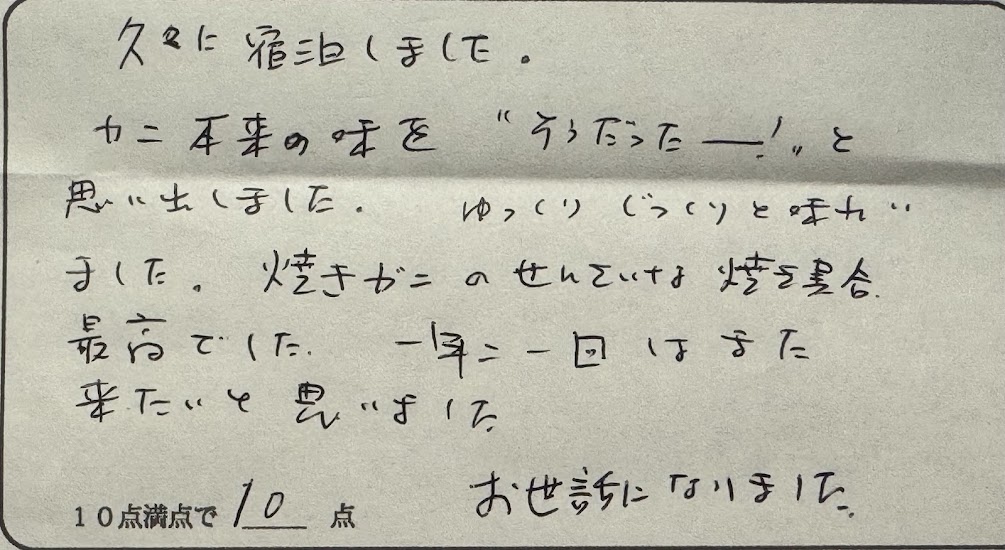 久々に宿泊しました。
カニ本来の味を“そうだったー!”と
思い出しました。 ゆっくりじっくりと味わい
ました。焼きガニのせんさいな焼き具合
最高でした。 一年に一回はまた
来たいと思いました
10点満点で 10 点
お世話になりました。